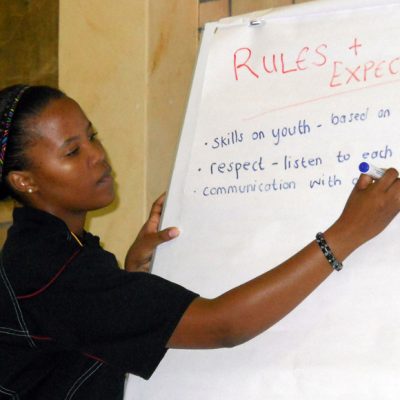 RULES +
EXPEC
• skills on youth - based on
• respect - listen to each
• communication with